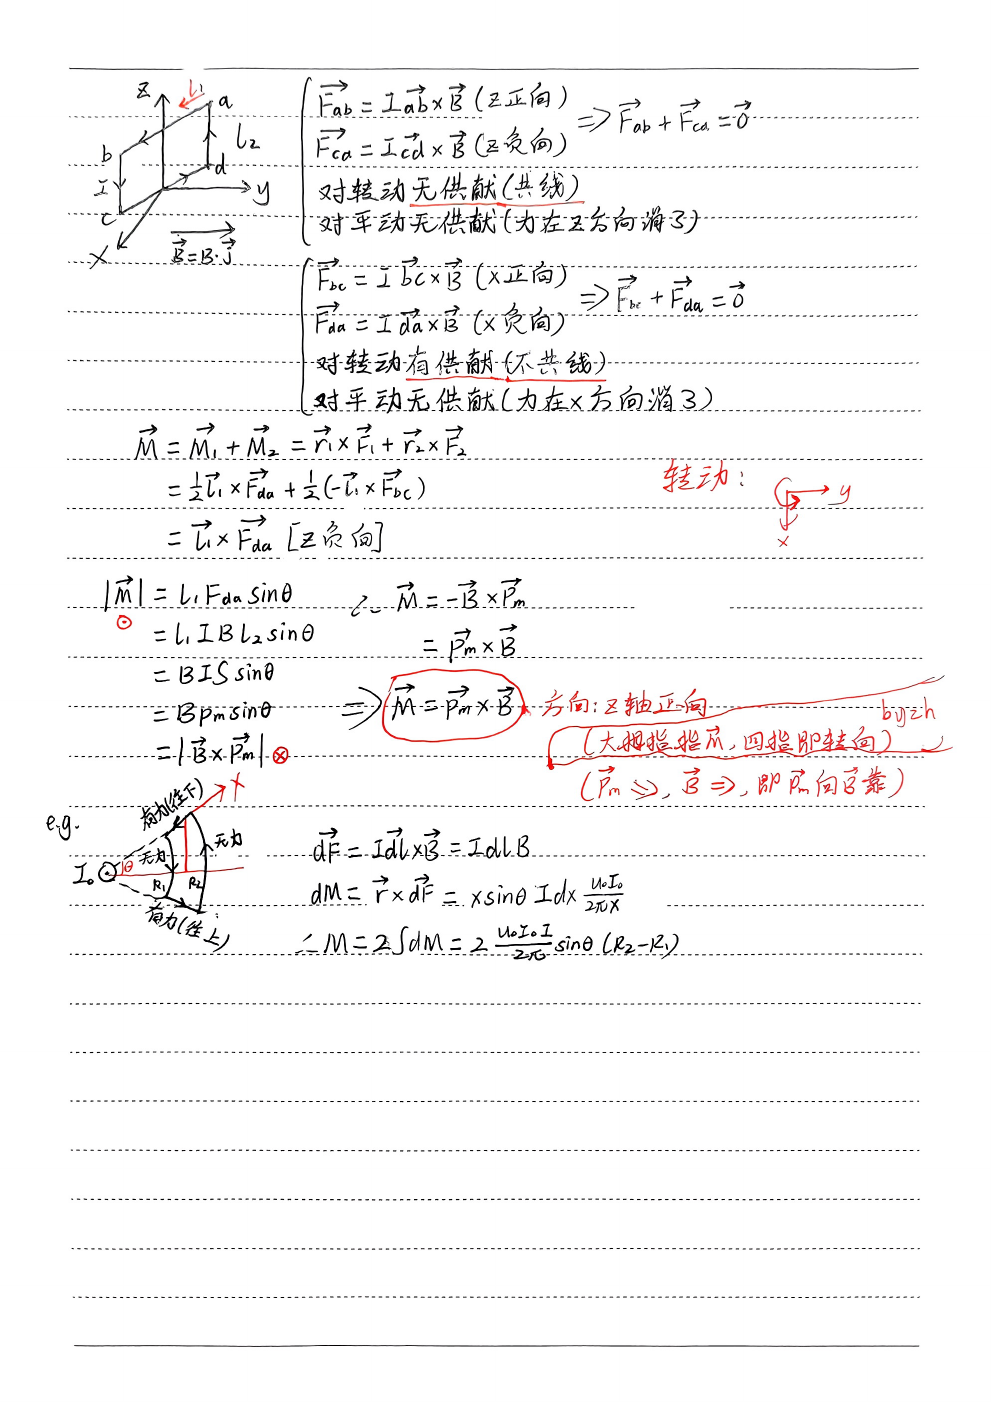 z l₁ a
b l₂
I d
c y
x B⃗=B·j⃗
F⃗ab = I a⃗b × B⃗ (z正向)
F⃗cd = I c⃗d × B⃗ (z负向)
⇒ F⃗ab + F⃗cd = 0⃗
对转动无供献(共线)
对平动无供献(力在z方向消了)
F⃗bc = I b⃗c × B⃗ (x正向)
F⃗da = I d⃗a × B⃗ (x负向)
⇒ F⃗bc + F⃗da = 0⃗
对转动有供献(不共线)
对平动无供献(力在x方向消了)
M⃗ = M⃗₁ + M⃗₂ = r⃗₁ × F⃗₁ + r⃗₂ × F⃗₂
= ½ l⃗₁ × F⃗da + ½ (-l⃗₁ × F⃗bc)
= l⃗₁ × F⃗da [z负向]
转动: y
x
|M⃗| = l₁ Fda sinθ
⊙ = l₁ I B l₂ sinθ
= B I S sinθ
= B pm sinθ
= |B⃗ × p⃗m| ⊗
∴ M⃗ = -B⃗ × p⃗m
= p⃗m × B⃗
⇒ M⃗ = p⃗m × B⃗ 方向: z轴正向
by zh
(大拇指指M⃗, 四指即转向)
(p⃗m ⇘, B⃗ ⇒, 即p⃗m向B⃗靠)
e.g. 有力(往下) x
无力 无力
I₀ ⊙ θ R₁ R₂
有力(往上)
d⃗F = I d⃗l × B⃗ = I dl B
dM = r⃗ × d⃗F = x sinθ I dx μ₀I₀/2πx
∴ M = 2∫dM = 2 μ₀I₀I/2π sinθ (R₂-R₁)